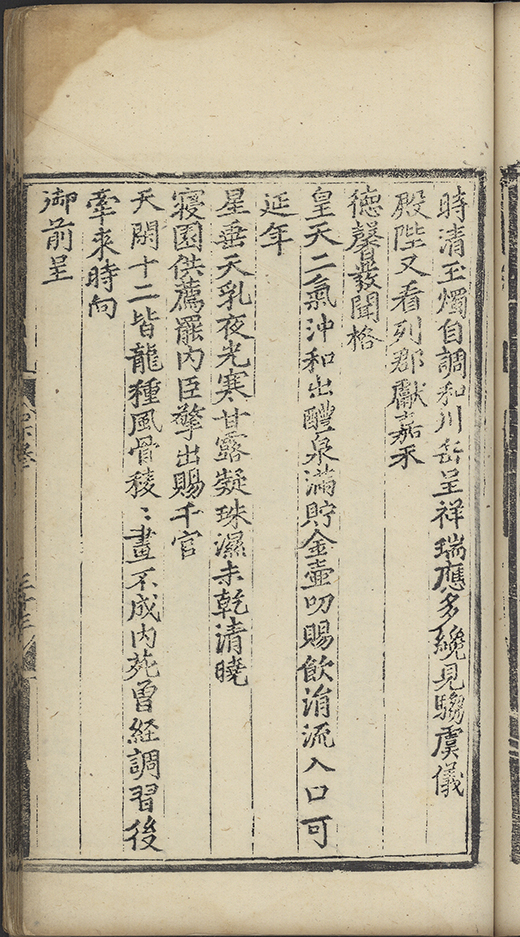 時清玉燭自調和川岳呈祥瑞應多纔見騶虞儀
殿陛又看列郡獻嘉禾
德馨敷聞格
皇天二氣沖和出醴泉滿貯金壺叨賜飲涓流入口可
延年
星垂天乳夜光寒甘露凝珠濕未乾清曉
寢園供薦罷內臣擎出賜千官
天閑十二皆龍種風骨稜〻畫不成內苑曾経調習後
牽來時向
御前呈
三十三